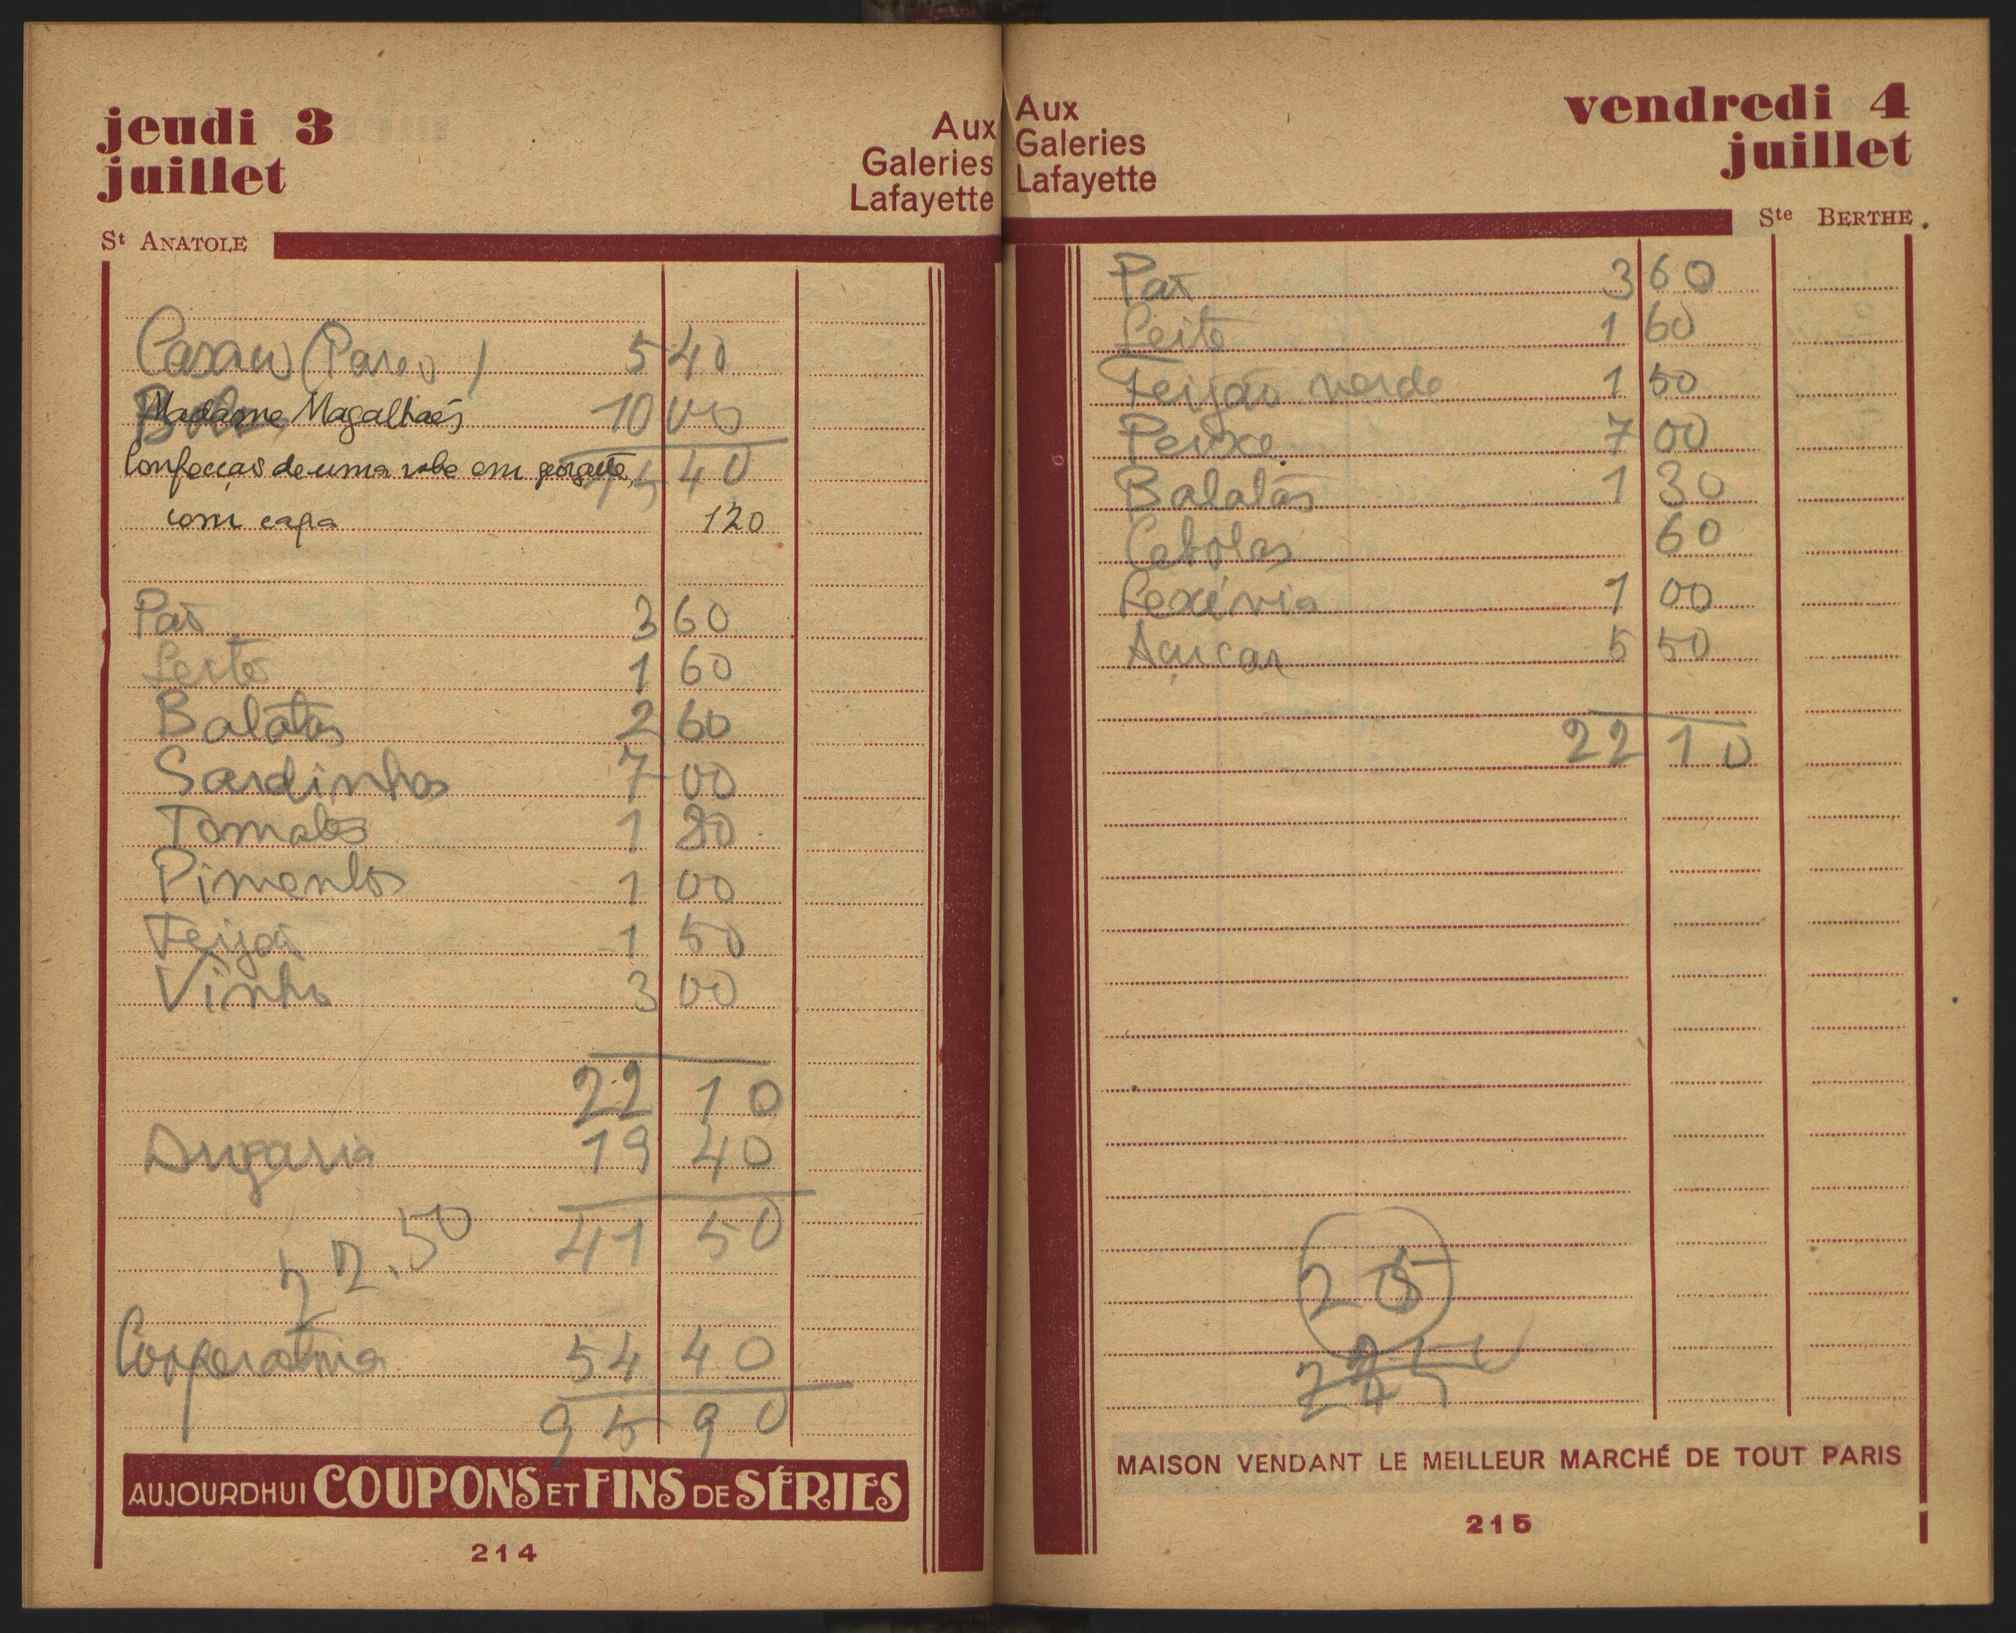 jeudi 3
juillet
Aux
Galeries
Lafayette
St ANATOLE
5 40
Madame Magalhaẽs 10 00
Confecçaõ de uma robe em georgette 15 40
com capa 120
Paõ 3 60
Leite 1 60
Batatas 2 60
Sardinhas 7 00
Tomates 1 80
Pimentos 1 00
Feijaõ 1 50
Vinho 3 00
22 10
Drogaria 19 40
41 50
22.50
Cooperativa 54 40
95 90
AUJOURDHUI COUPONS ET FINS DE SÉRIES
214
Aux
Galeries
Lafayette
vendredi 4
juillet
Ste BERTHE.
Paõ 3 60
Leite 1 60
Feijaõ verde 1 50
Peixe 7 00
Batatas 1 30
Cebolas 60
Lexívia 1 00
Açucar 5 50
22 10
25
MAISON VENDANT LE MEILLEUR MARCHÉ DE TOUT PARIS
215